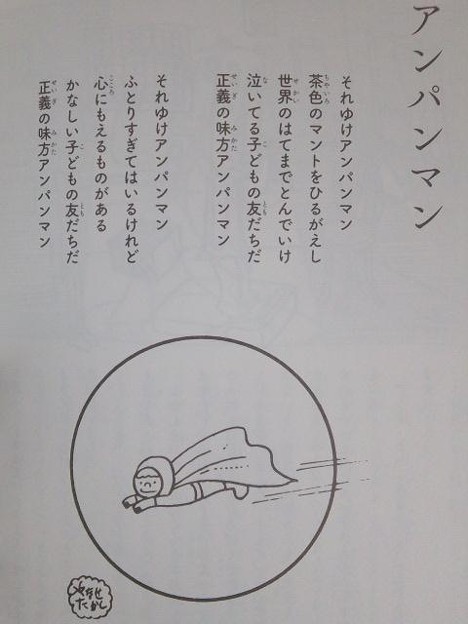 アンパンマン
それゆけアンパンマン
茶色のマントをひるがえし
世界のはてまでとんでいけ
泣いてる子どもの友だちだ
正義の味方アンパンマン
それゆけアンパンマン
ふとりすぎてはいるけれど
心にもえるものがある
かなしい子どもの友だちだ
正義の味方アンパンマン
やなせたかし